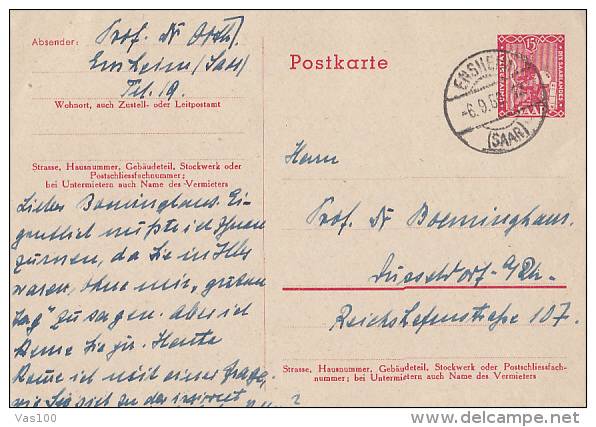 Absender: Prof. Dr Orth,
Ensheim (Saar)
Tel. 19.
Wohnort, auch Zustell- oder Leitpostamt
Strasse, Hausnummer, Gebäudeteil, Stockwerk oder
Postschliessfachnummer;
bei Untermietern auch Name des Vermieters
Lieber Boeminghaus. Ei-
gentlich müßte ich Ihnen
zürnen, da Sie in
waren, ohne mir „guten
Tag" zu sagen. Aber ich
kenne Sie ja. Heute
komme ich mit einer Frage,
wie Sie sich zu der
Postkarte
15
SAARLANDES
ENSHEIM
-6.9.
(SAAR)
Herrn
Prof. Dr Boeminghaus.
Düsseldorf a/Rh.
Strasse, Hausnummer, Gebäudeteil, Stockwerk oder Postschliessfach-
nummer; bei Untermietern auch Name des Vermieters
Vas100
© www.delcampe.net